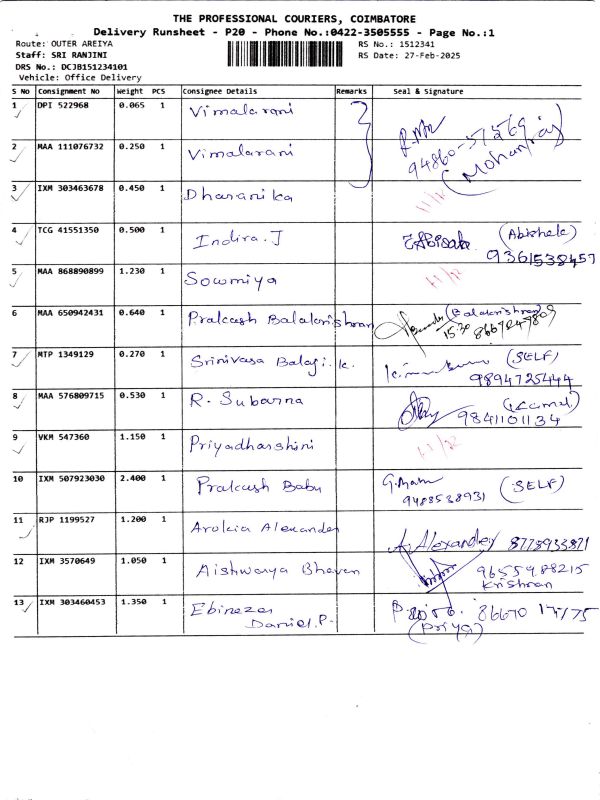 THE PROFESSIONAL COURIERS, COIMBATORE
Delivery Runsheet - P20 - Phone No.:0422-3505555 - Page No.:1
Route: OUTER AREIYA
RS No.: 1512341
Staff: SRI RANJINI
RS Date: 27-Feb-2025
DRS No.: DCJB151234101
Vehicle: Office Delivery
S No Consignment No Weight PCS Consignee Details Remarks Seal & Signature
1 DPI 522968 0.065 1 Vimalarani
2 MAA 111076732 0.250 1 Vimalarani
(Mohanraj)
3 IXM 303463678 0.450 1 Dharanika
4 TCG 41551350 0.500 1 Indira. J
9361538457
5 MAA 868890899 1.230 1 Sowmiya
6 MAA 650942431 0.640 1 Prakash Balakrishnan (Balakrishnan)
7 MTP 1349129 0.270 1 Srinivasa Balaji. k. (SELF)
9894725444
8 MAA 576809715 0.530 1 R. Subarna
9841101134
9 VKM 547360 1.150 1 Priyadharshini
10 IXM 507923030 2.400 1 Prakash Babu (SELF)
9488538931
11 RJP 1199527 1.200 1 Arokia Alexander
A. Alexander
12 IXM 3570649 1.050 1 Aishwarya Bhavan
9655988215
Krishnan
13 IXM 303460453 1.350 1 Ebinezer
Daniel. P.
(Priya)